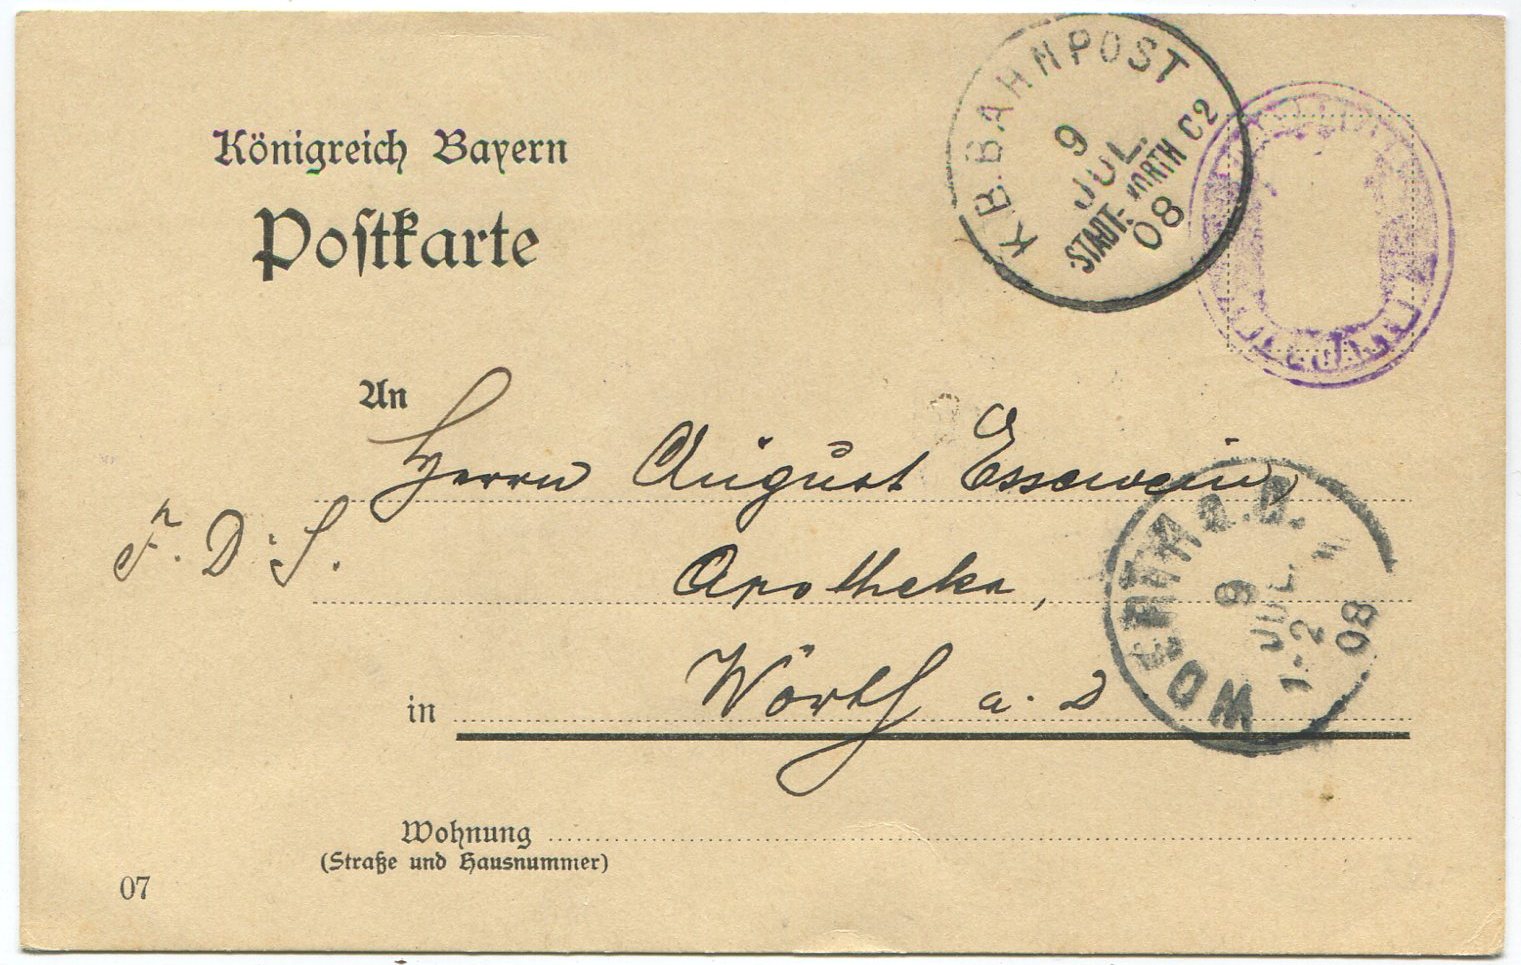 Königreich Bayern
Postkarte
K.B.BAHNPOST
9
JUL.
STADT-WÖRTH C2
08
An
Herrn August Essewein,
F. D. S.
Apotheker,
in Wörth a. D
WOERTH A. D.
9
JUL.
1-2 N
08
Wohnung
(Straße und Hausnummer)
07